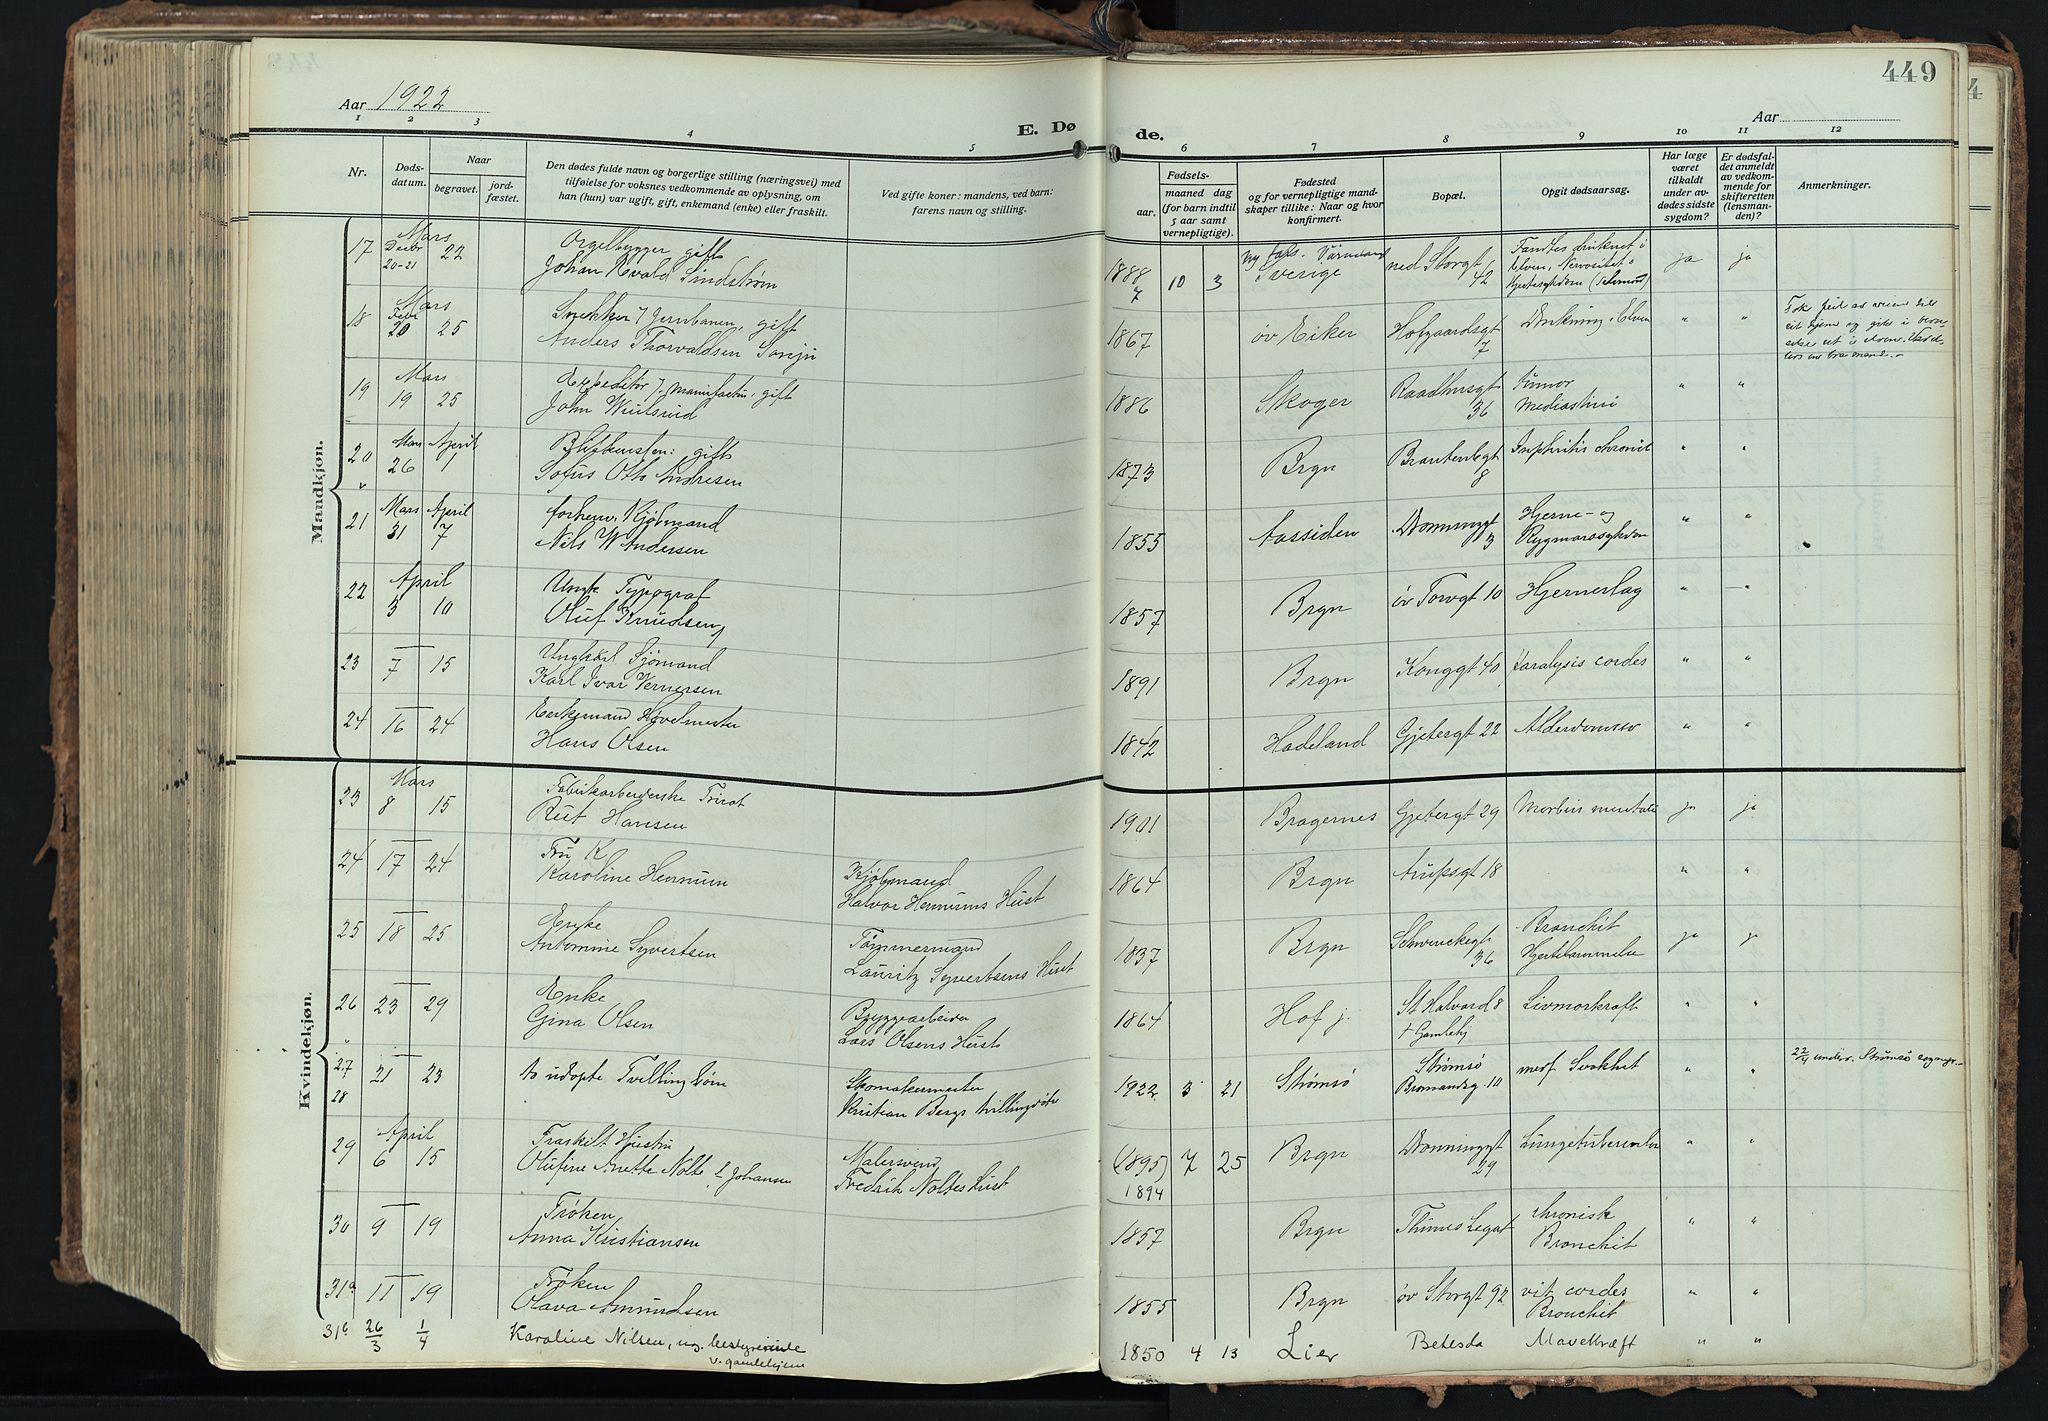 449
Aar 1922
E. Døde.
Aar
1 2 3 4 5 6 7 8 9 10 11 12
Nr.
Døds-
datum.
Naar
begravet.
jord-
fæstet.
Den dødes fulde navn og borgerlige stilling (næringsvei) med
tilføielse for voksnes vedkommende av oplysning, om
han (hun) var ugift, gift, enkemand (enke) eller fraskilt.
Ved gifte koner: mandens, ved barn:
farens navn og stilling.
Fødsels-
aar.
maaned dag
(for barn indtil
5 aar samt
vernepligtige).
Fødested
og for vernepligtige mand-
skaper tillike: Naar og hvor
konfirmert.
Bopæl.
Opgit dødsaarsag.
Har læge
været
tilkaldt
under av-
dødes sidste
sygdom?
Er dødsfal-
det anmeldt
av vedkom-
mende for
skifteretten
(lensman-
den)?
Anmerkninger.
Mandkjøn.
17 Decbr 20-21 Mars 22 Orgelbygger, gift
Johan Evald Lindstrøm 1888 10 3 Sverige ned Storgt 42 Fandtes druknet i
Elven, ja ja
18 Febr 20 Mars 25 Snekker v/ Jernbanen, gift
Anders Thorvaldsen 1867 øv Eiker Hofgaardsgt 7 Drukning i Elven " "
19 Mars 19 25 Expeditør i manifaktur, gift
John 1886 Skoger Raadhusgt 36 Tumor
Mediastini " "
20 Mars 26 April 1 gift
Sofus Otto Andresen 1873 Brgn 8 " "
21 Mars 31 April 7 forhenv. Kjøbmand
Nils W Andersen 1855 Aassiden Dronninggt 3 Hjerne- og
Rygmarvssykdom " "
22 April 3 10 Typograf
Oluf Knudsen 1857 Brgn øv Torvgt 10 Hjerneslag " "
23 7 15 Ungkarl Sjømand
Karl Ivar Vernersen 1891 Brgn Konggt 40 Paralysis cordis " "
24 16 24 Enkemand Høvelmester
Hans Olsen 1842 Hadeland Gjetergt 22 Alderdomssv " "
Kvindekjøn.
23 Mars 8 15 Fabrikarbeiderske Tricot
Rut Hansen 1901 Bragernes Gjetergt 29 Morbus mentalis ja ja
24 17 24 Fru K
Karoline Hennum Kjøbmand
Halvor Hennums Hust 1864 Brgn Arupsgt 18 " "
25 18 25 Enke
Antomine Syvertsen Tømmermand
Lauritz Syvertsens Hust 1837 Brgn Schwenckegt 36 Bronchit
Hjertelammelse ja ja
26 23 29 Enke
Gina Olsen Bryggearbeider
Lars Olsens Hust 1864 Hof j. St Halvard 8
+ Gamlehj Livmorkræft " "
27
28 21 23 to udøpte Tvillingbørn Skomakermester
Kristian Bergs tvillingdøtre 1922 3 21 Strømsø Strømsø
10 medf Svakhet " " 22/4 underr. Strømsø sognepr.
29 April 6 15 Fraskilt Hustru
Olufine Anette Nolte f. Johansen Malersvend
Fredrik Noltes Hust (1895)
1894 7 25 Brgn Dronninggt 29 Lungetuberculose " "
30 9 19 Frøken
Anna Kristiansen 1857 Brgn Thimes Legat chronisk
Bronchit " "
31a 11 19 Frøken
Olava Amundsen 1855 Brgn øv Storgt 92 vit. cordis
Bronchit " "
31b 26/3 1/4 Karoline Nilsen, ug. bestyrerinde
v. gamlehjem 1850 4 13 Lier Betesda Mavekræft " "